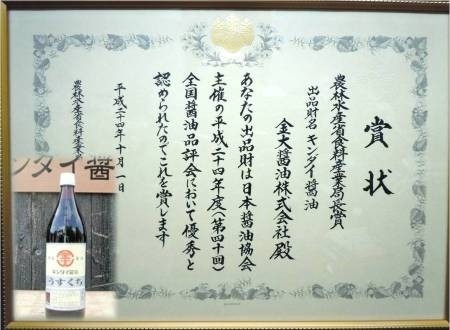 賞状
農林水産省食料産業局長賞
出品財名 キンダイ醤油
金大醤油株式会社 殿
あなたの出品財は日本醤油協会
主催の平成二十四年度(第四十回)
全国醤油品評会において優秀と
認められたのでこれを賞します
平成二十四年十月一日
農林水産省食料産業局
ンタイ醤
キンダイ醤油
うすくち